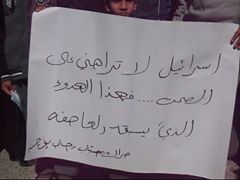 اسرائيل لا تراهني على
الصمت .... فهذا الهدوء
الذي يسبق العاصفه